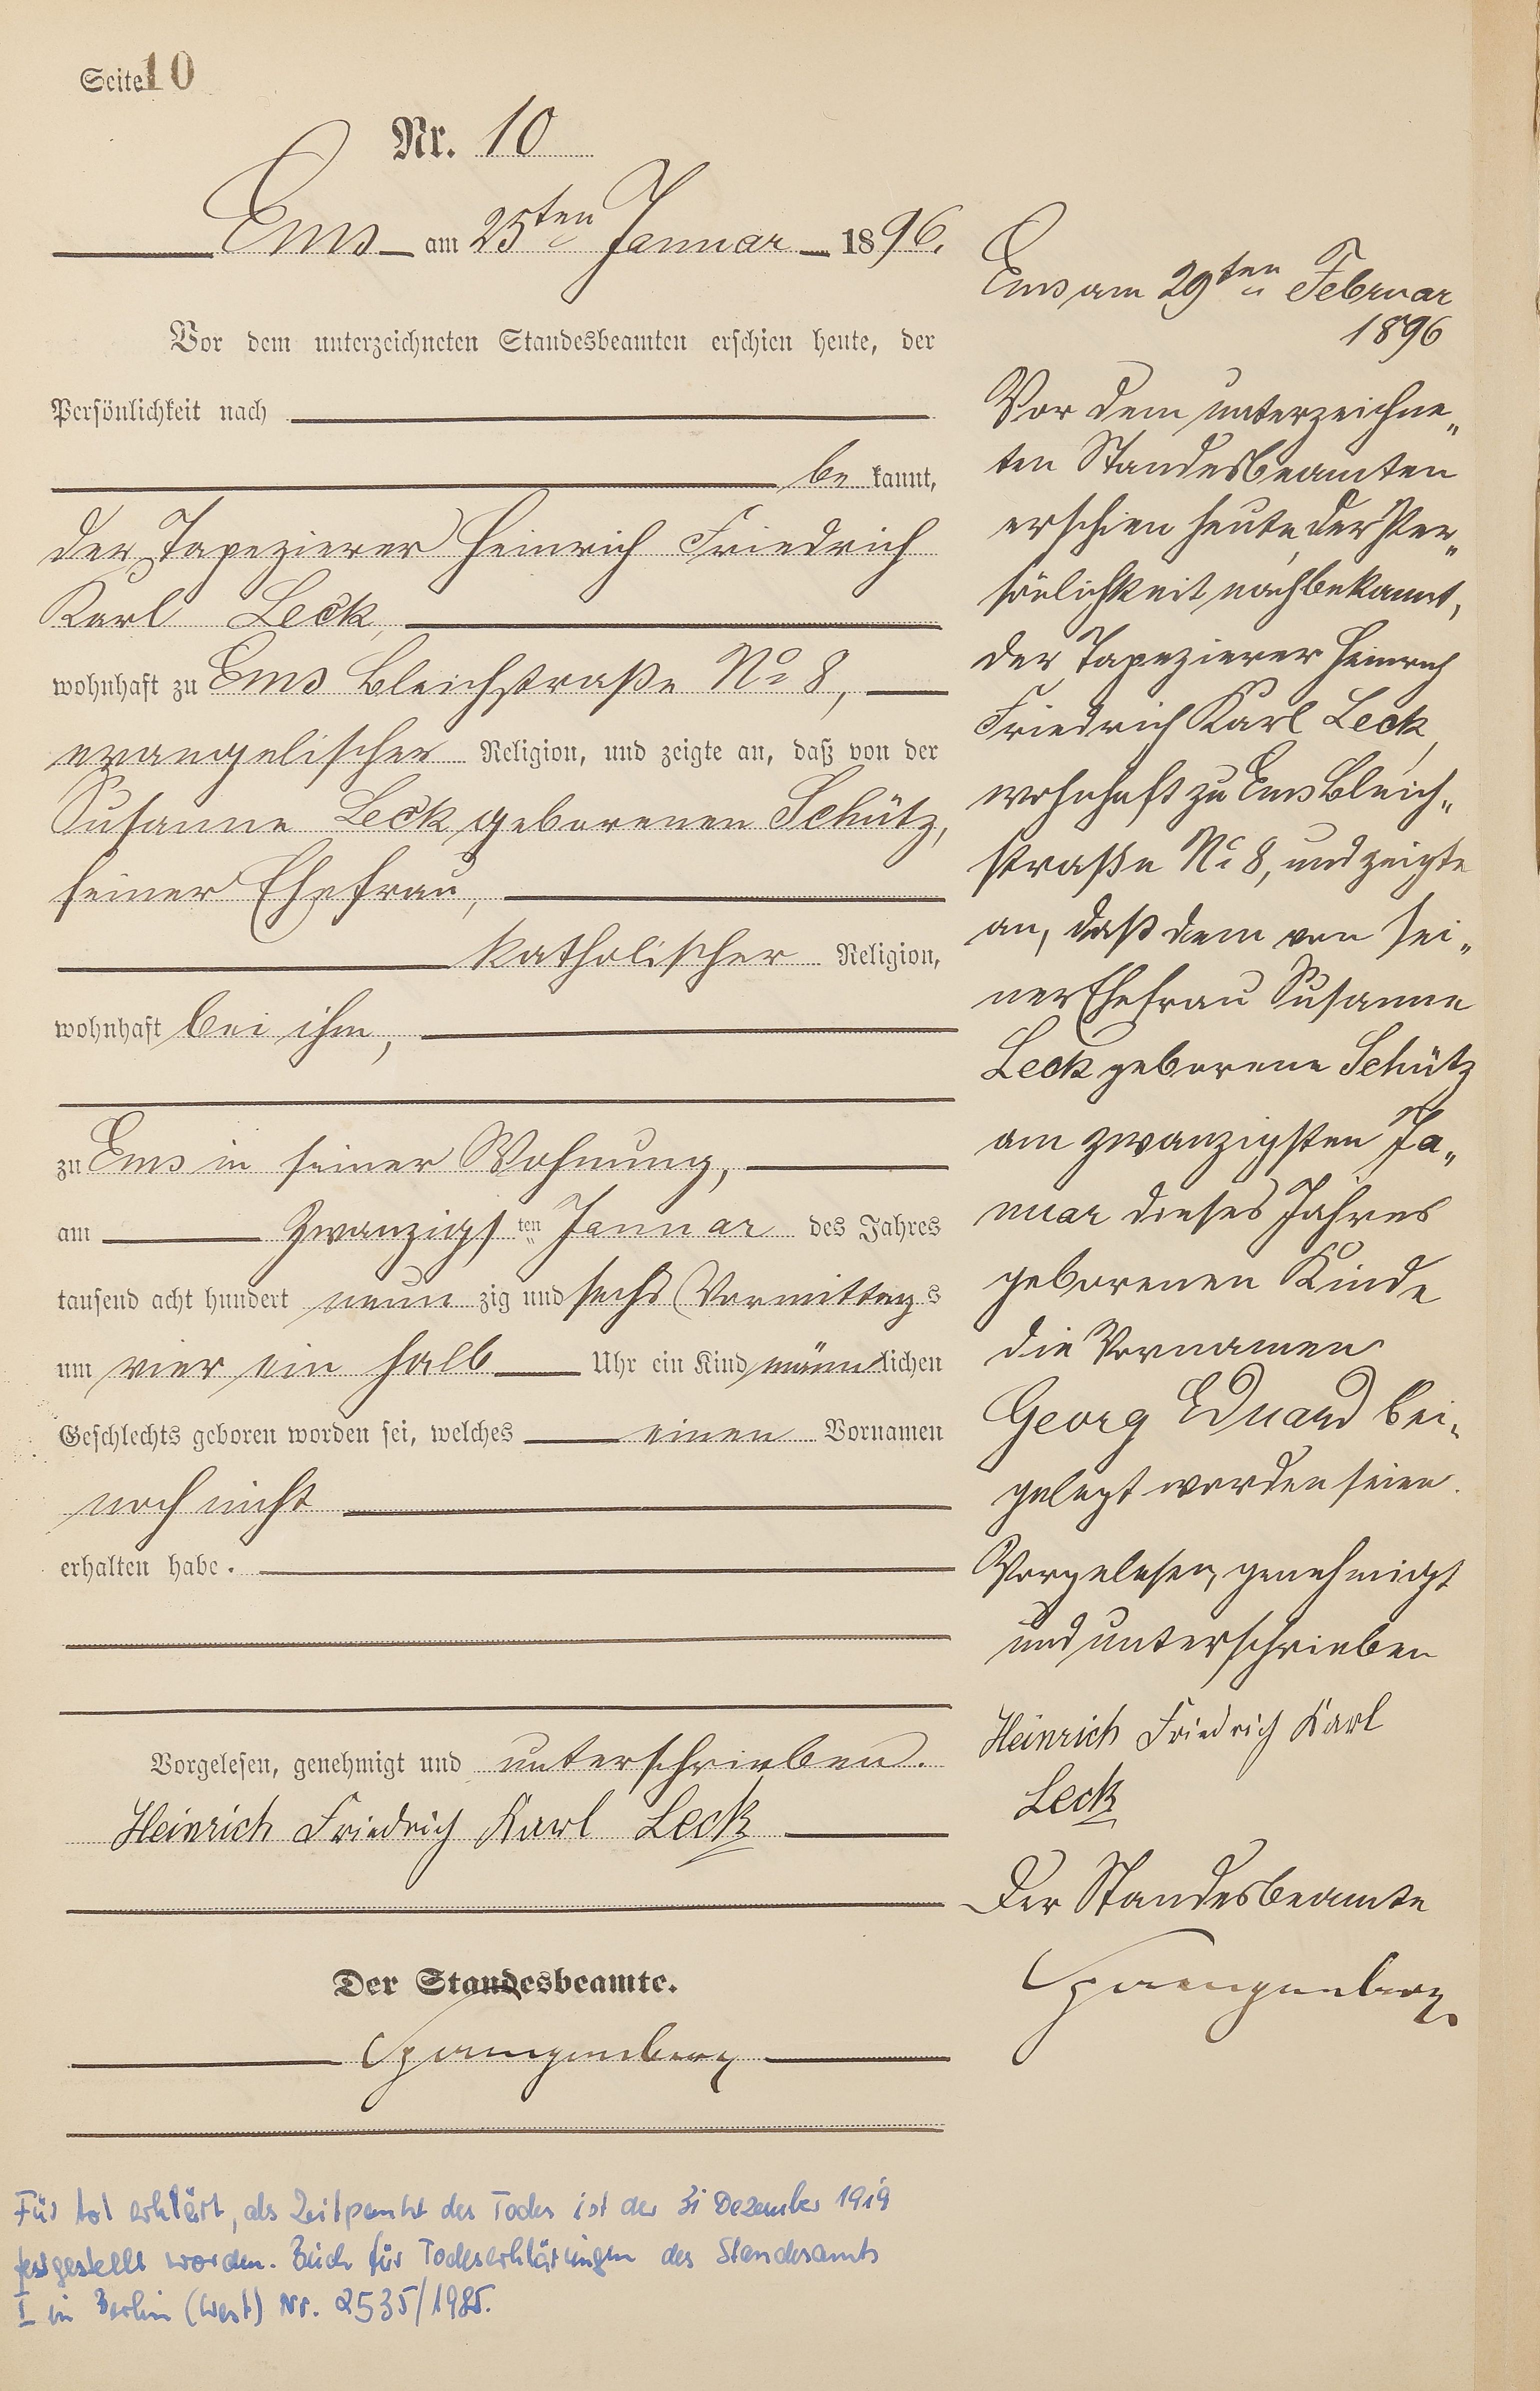 Seite 10
Nr. 10
Ems am 25ten Januar 1896.
Vor dem unterzeichneten Standesbeamten erschien heute, der
Persönlichkeit nach
be kannt,
der Tapezierer Heinrich Friedrich
Karl Leck,
wohnhaft zu Ems Bleichstraße No 8,
evangelischer Religion, und zeigte an, daß von der
Susanne Leck geborenen Schütz,
seiner Ehefrau,
katholischer Religion,
wohnhaft bei ihm,
zu Ems in seiner Wohnung,
am zwanzigsten Januar des Jahres
tausend acht hundert neun zig und sechs Vormittags
um vier ein halb Uhr ein Kind männlichen
Geschlechts geboren worden sei, welches einen Vornamen
noch nicht
erhalten habe.
Vorgelesen, genehmigt und unterschrieben.
Heinrich Friedrich Karl Leck
Der Standesbeamte.
Spangenberg
Für tot erklärt, als Zeitpunkt des Todes ist der 31 Dezember 1919
festgestellt worden. Buch für Todeserklärungen des Standesamts
I in Berlin (West) Nr. 2535/1985.
Ems am 29ten Februar
1896
Vor dem unterzeichne„
ten Standesbeamten
erschien heute, der Per„
sönlichkeit nach bekannt,
der Tapezierer Heinrich
Friedrich Karl Leck,
wohnhaft zu Ems Bleich„
straße No 8, und zeigte
an, daß dem von sei„
ner Ehefrau Susanne
Leck geborene Schütz
am zwanzigsten Ja„
nuar dieses Jahres
geborenen Kinde
die Vornamen
Georg Eduard bei„
gelegt worden seien.
Vorgelesen, genehmigt
und unterschrieben
Heinrich Friedrich Karl
Leck
Der Standesbeamte
Spangenberg